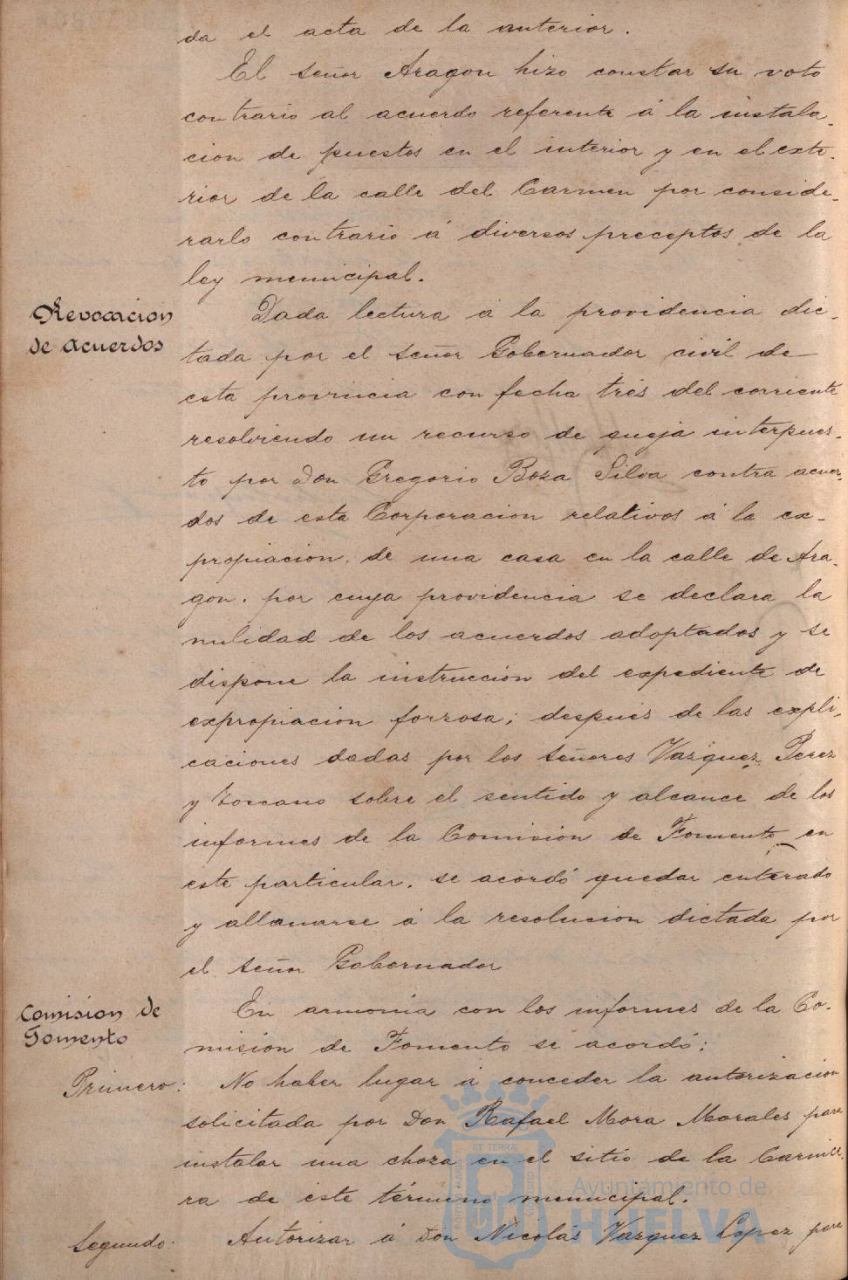 da el acta de la anterior.
El señor Aragon hizo constar su voto
contrario al acuerdo referente á la instala-
cion de puestos en el interior y en el exte-
rior de la calle del Carmen por conside-
rarlo contrario á diversos preceptos de la
ley municipal.
Revocacion
de acuerdos
Dada lectura á la providencia dic-
tada por el señor Gobernador civil de
esta provincia con fecha tres del corriente
resolviendo un recurso de queja interpues-
to por Don Gregorio Boza Silva contra acuer-
dos de esta Corporacion relativos á la ex-
propiacion de una casa en la calle de Ara-
gon. por cuya providencia se declara la
nulidad de los acuerdos adoptados y se
dispone la instrucción del expediente de
expropiacion forzosa; después de las expli-
caciones dadas por los señores Vazquez, Perez
y Toscano sobre el sentido y alcance de los
informes de la Comision de Fomento en
este particular. se acordó quedar enterado
y allanarse á la resolucion dictada por
el señor Gobernador
Comision de
Fomento
En armonia con los informes de la Co-
mision de Fomento se acordó:
Primero: No haber lugar á conceder la autorizacion
solicitada por Don Rafael Mora Morales para
instalar una choza en el sitio de la Carnice-
ra de este término municipal.
Segundo. Autorizar á Don Nicolás Vazquez Lopez para
Ayuntamiento de
HUELVA